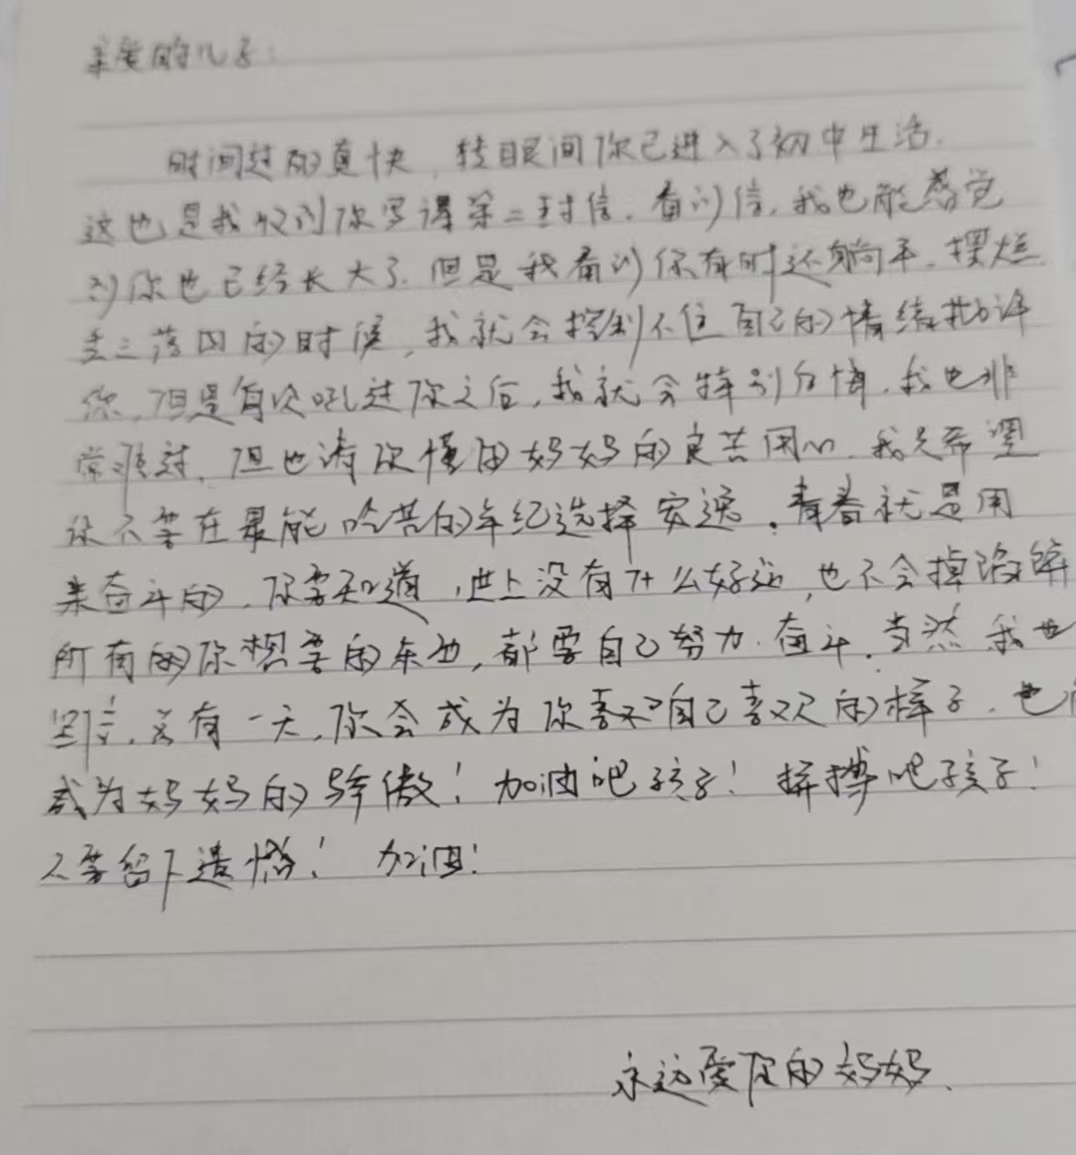 亲爱的儿子:
时间过的真快,转眼间你已进入了初中生活.
这也是我收到你写得第二封信.看到信,我也能感觉
到你也已经长大了.但是我看到你有时还躺平、摆烂
丢三落四的时候,我就会控制不住自己的情绪批评
你,但是每次吼过你之后,我就会特别自悔.我也非
常难过,但也请你懂的妈妈的良苦用心.我只希望
你不要在最能吃苦的年纪选择安逸.青春就是用
来奋斗的,你要知道,世上没有什么好运,也不会掉馅饼
所有的你想要的东西,都要自己努力.奋斗.当然我也
坚信,总有一天,你会成为你喜欢自己喜欢的样子.也
成为妈妈的骄傲!加油吧孩子!拼搏吧孩子!
不要留下遗憾!加油!
永远爱你的妈妈.